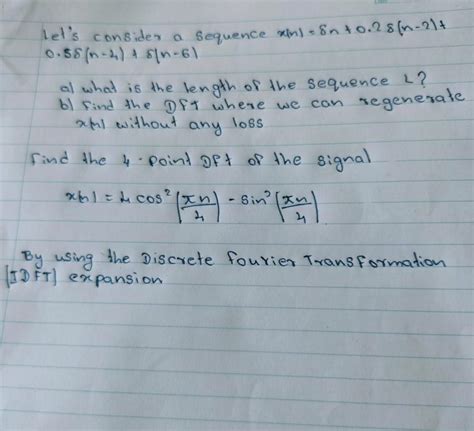 Let's consider a sequence x(n) = δn + 0.2δ(n-2)+
0.5δ(n-4) + δ(n-6)
a) what is the length of the sequence L?
b) Find the DFT where we can regenerate
x(n) without any loss
Find the 4-point DFT of the signal
x(n) = 4 cos²(πn/4) - sin²(πn/4)
By using the Discrete Fourier Transformation
[IDFT] expansion